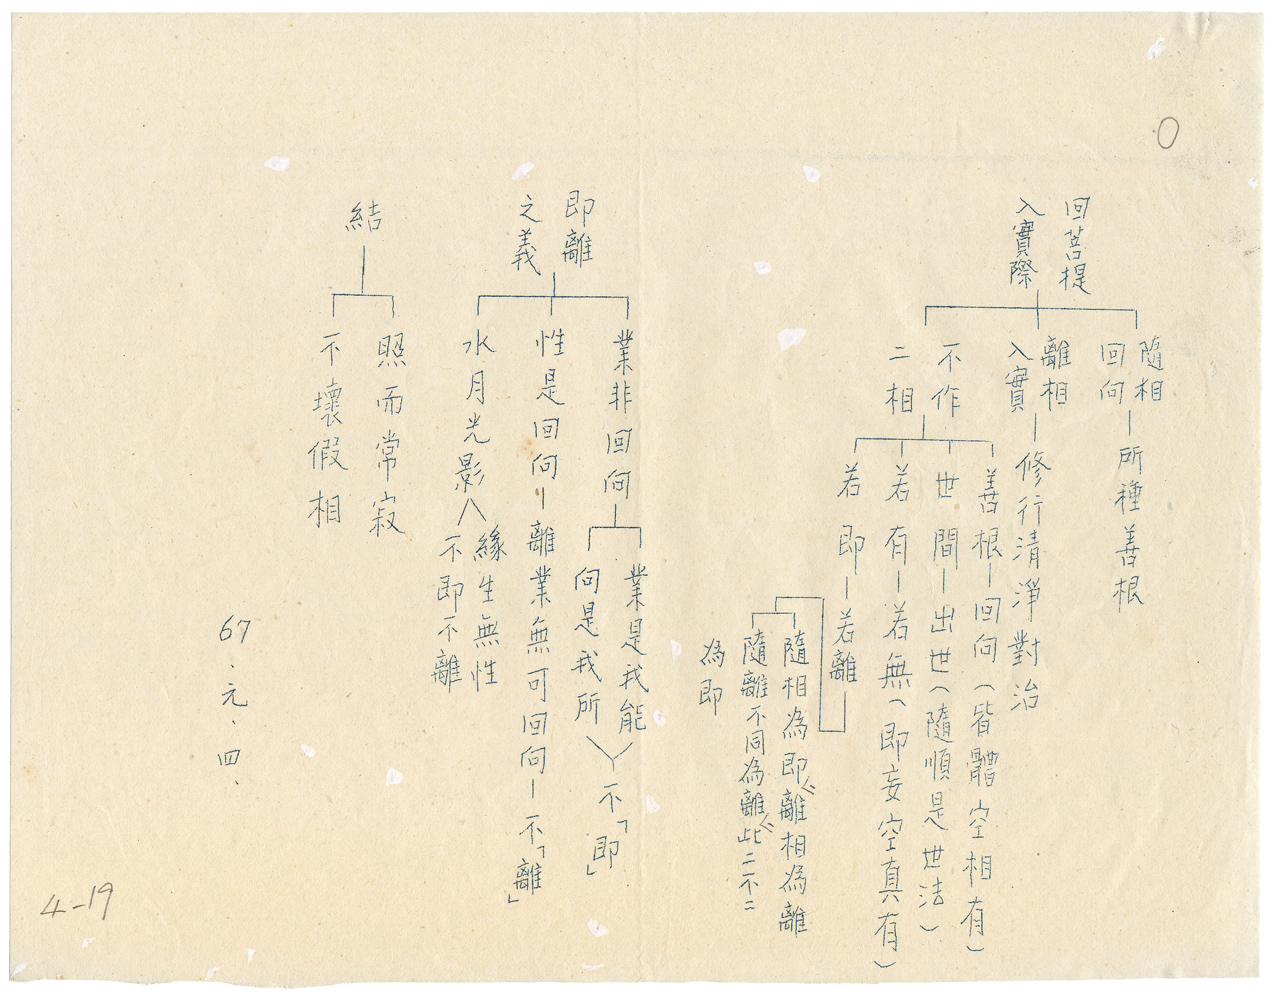 0
回菩提
入實際
隨相
回向
所種善根
離相
入實
修行清淨對治
不作
二相
善根
回向(皆體空相有)
世間
出世(隨順是世法)
若有
若無(即妄空真有)
若即
若離
隨相為即離相為離
隨離不同為離此二不二
為即
即離
之義
業非回向
業是我能
向是我所
不「即」
性是回向
離業無可回向
不「離」
水月光影
緣生無性
不即不離
結
照而常寂
不壞假相
67、元、四、
4-19